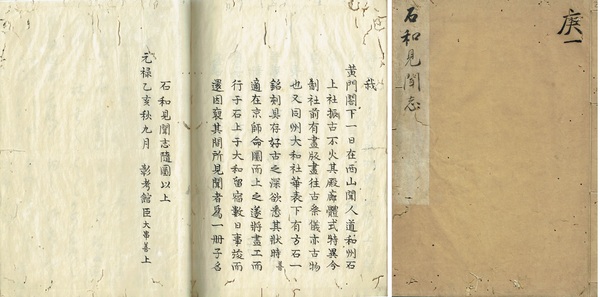 庚一
石和見聞志
我
黄門閣下一日在西山聞人道和州石
上社振古不火其殿廊體式特異今
制社前有畫版畫往古祭儀亦古物
也又同州大和社華表下有方石一
銘刻具存好古之深欲悉其狀時善
適在京師命圖而上之遂將畫工而
行于石上于大和留宿數日事竣而
還因裒其間所見聞者爲一册子名
石和見聞志隨圖以上
元禄乙亥秋九月 彰考館臣大串善上